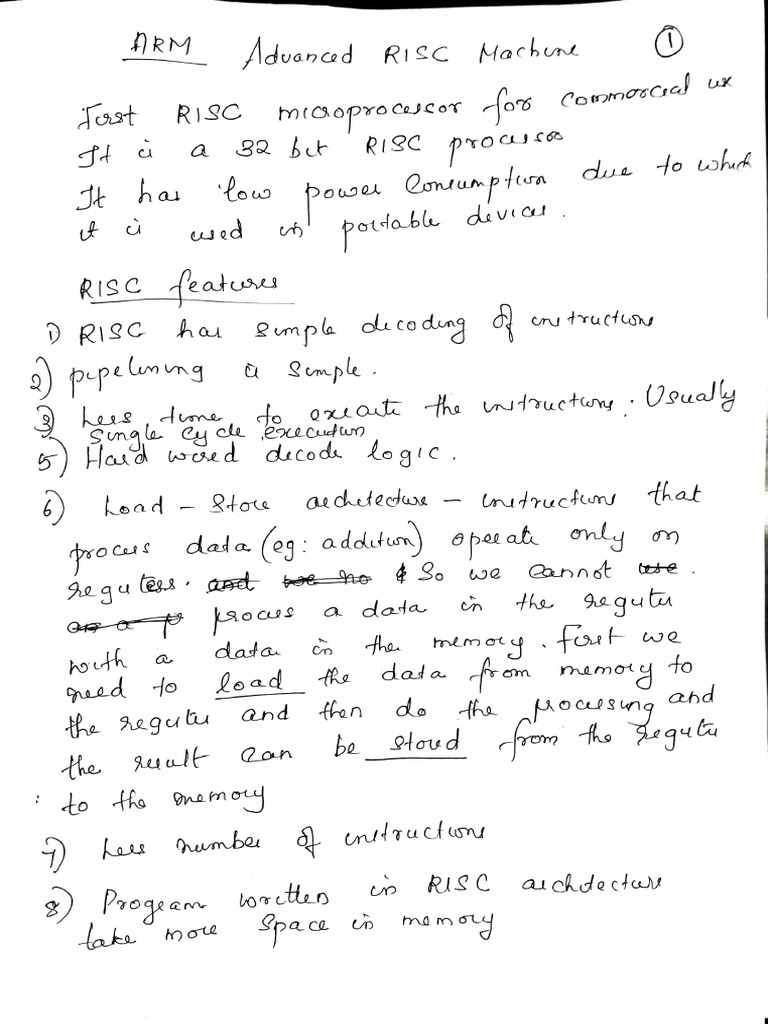 ARM Advanced RISC Machine ①
First RISC microprocessor for commercial use
It is a 32 bit RISC processor
It has low power consumption due to which
it is used in portable devices.
RISC features
1) RISC has simple decoding of instructions
2) pipelining is simple.
3) Less time to execute the instructions. Usually
single cycle execution
5) Hard wired decode logic.
6) Load - Store architecture - instructions that
process data (eg: addition) operate only on
registers. and we no & So we cannot use.
as a p process a data in the register
with a data in the memory. First we
need to load the data from memory to
the register and then do the processing and
the result can be stored from the register
to the memory
7) Less number of instructions
8) Program written in RISC architecture
take more space in memory